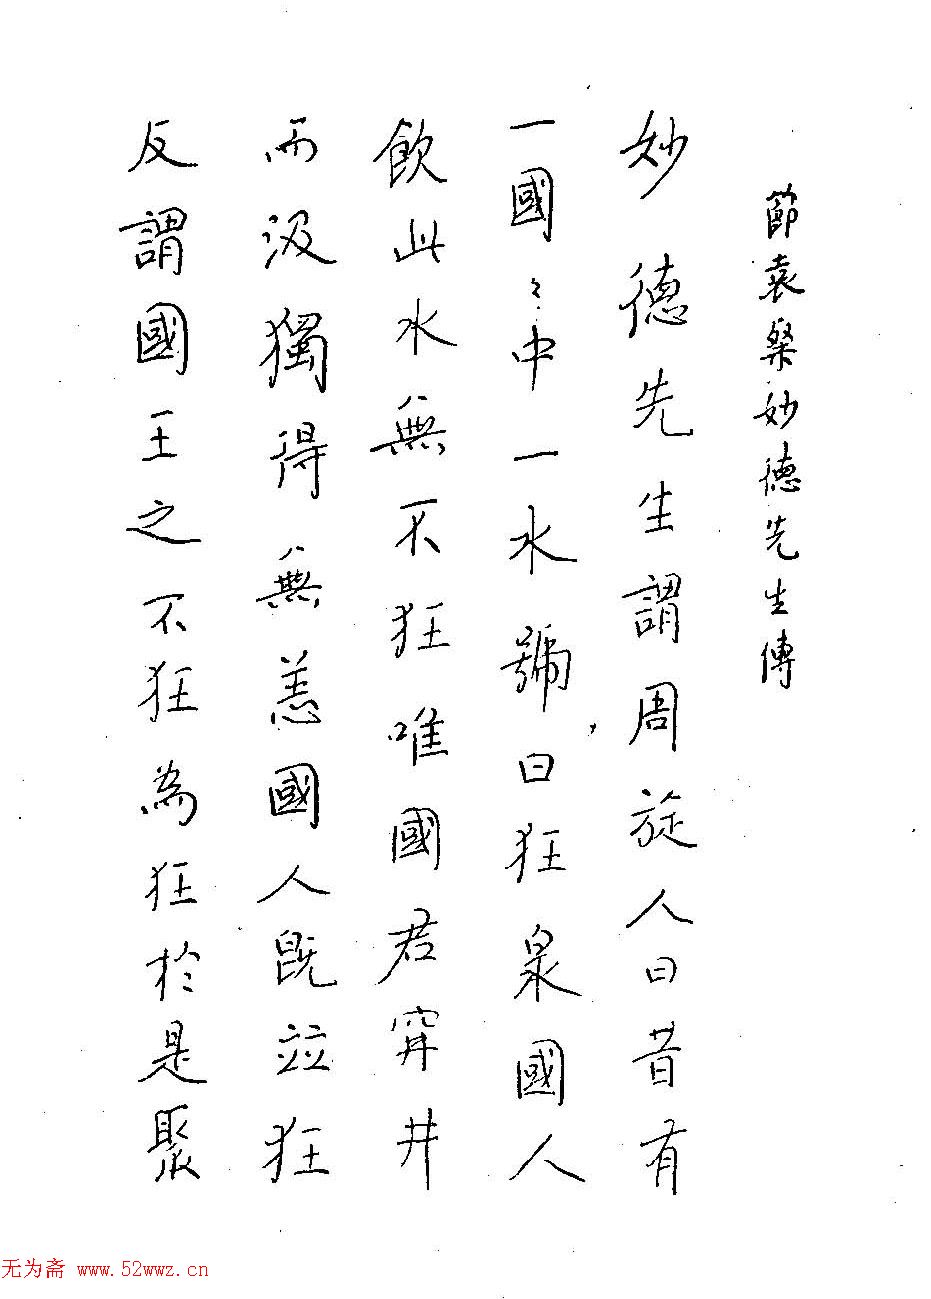 節袁粲妙德先生傳
妙德先生謂周旋人曰昔有
一國〻中一水號曰狂泉國人
飲此水無不狂唯國君穿井
而汲獨得無恙國人既竝狂
反謂國王之不狂為狂於是聚
无为斋 www.52wwz.cn